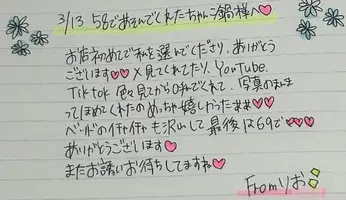 3/13 58であそんでくれたちゃんこ鍋様へ♡
お店初めてで私を選んでくださり、ありがとう
ございます♡♡ X見てくれてたり、YouTube.
Tiktok 色々見てから呼んでくれて、写真のまんま
ってほめてくれたのめっちゃ嬉しかったぁぁ♡♡
ベッドのイチャイチャも沢山して最後は69で〰♡♡
ありがとうございます♡
またお誘いお待ちしてますね♡
Fromりお